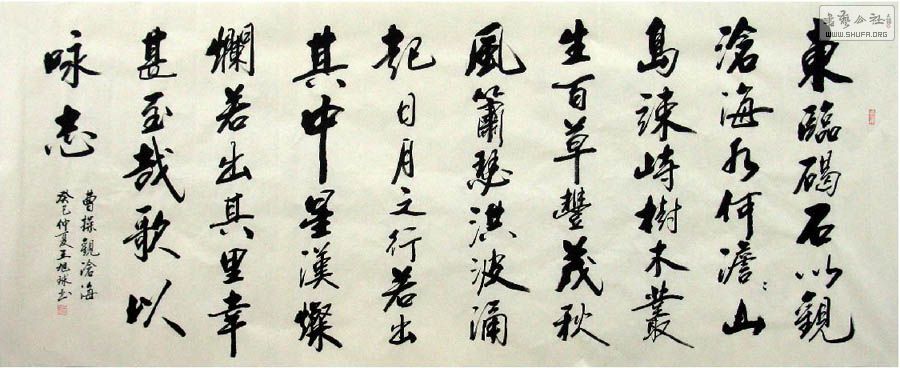 東臨碣石以觀
滄海水何澹〻山
島竦峙樹木叢
生百草豐茂秋
風簫瑟洪波涌
起日月之行若出
其中星漢燦
爛若出其里幸
甚至哉歌以
咏志
曹操觀滄海
癸巳仲夏王旭球書
書藝公社
WWW.SHUFA.ORG